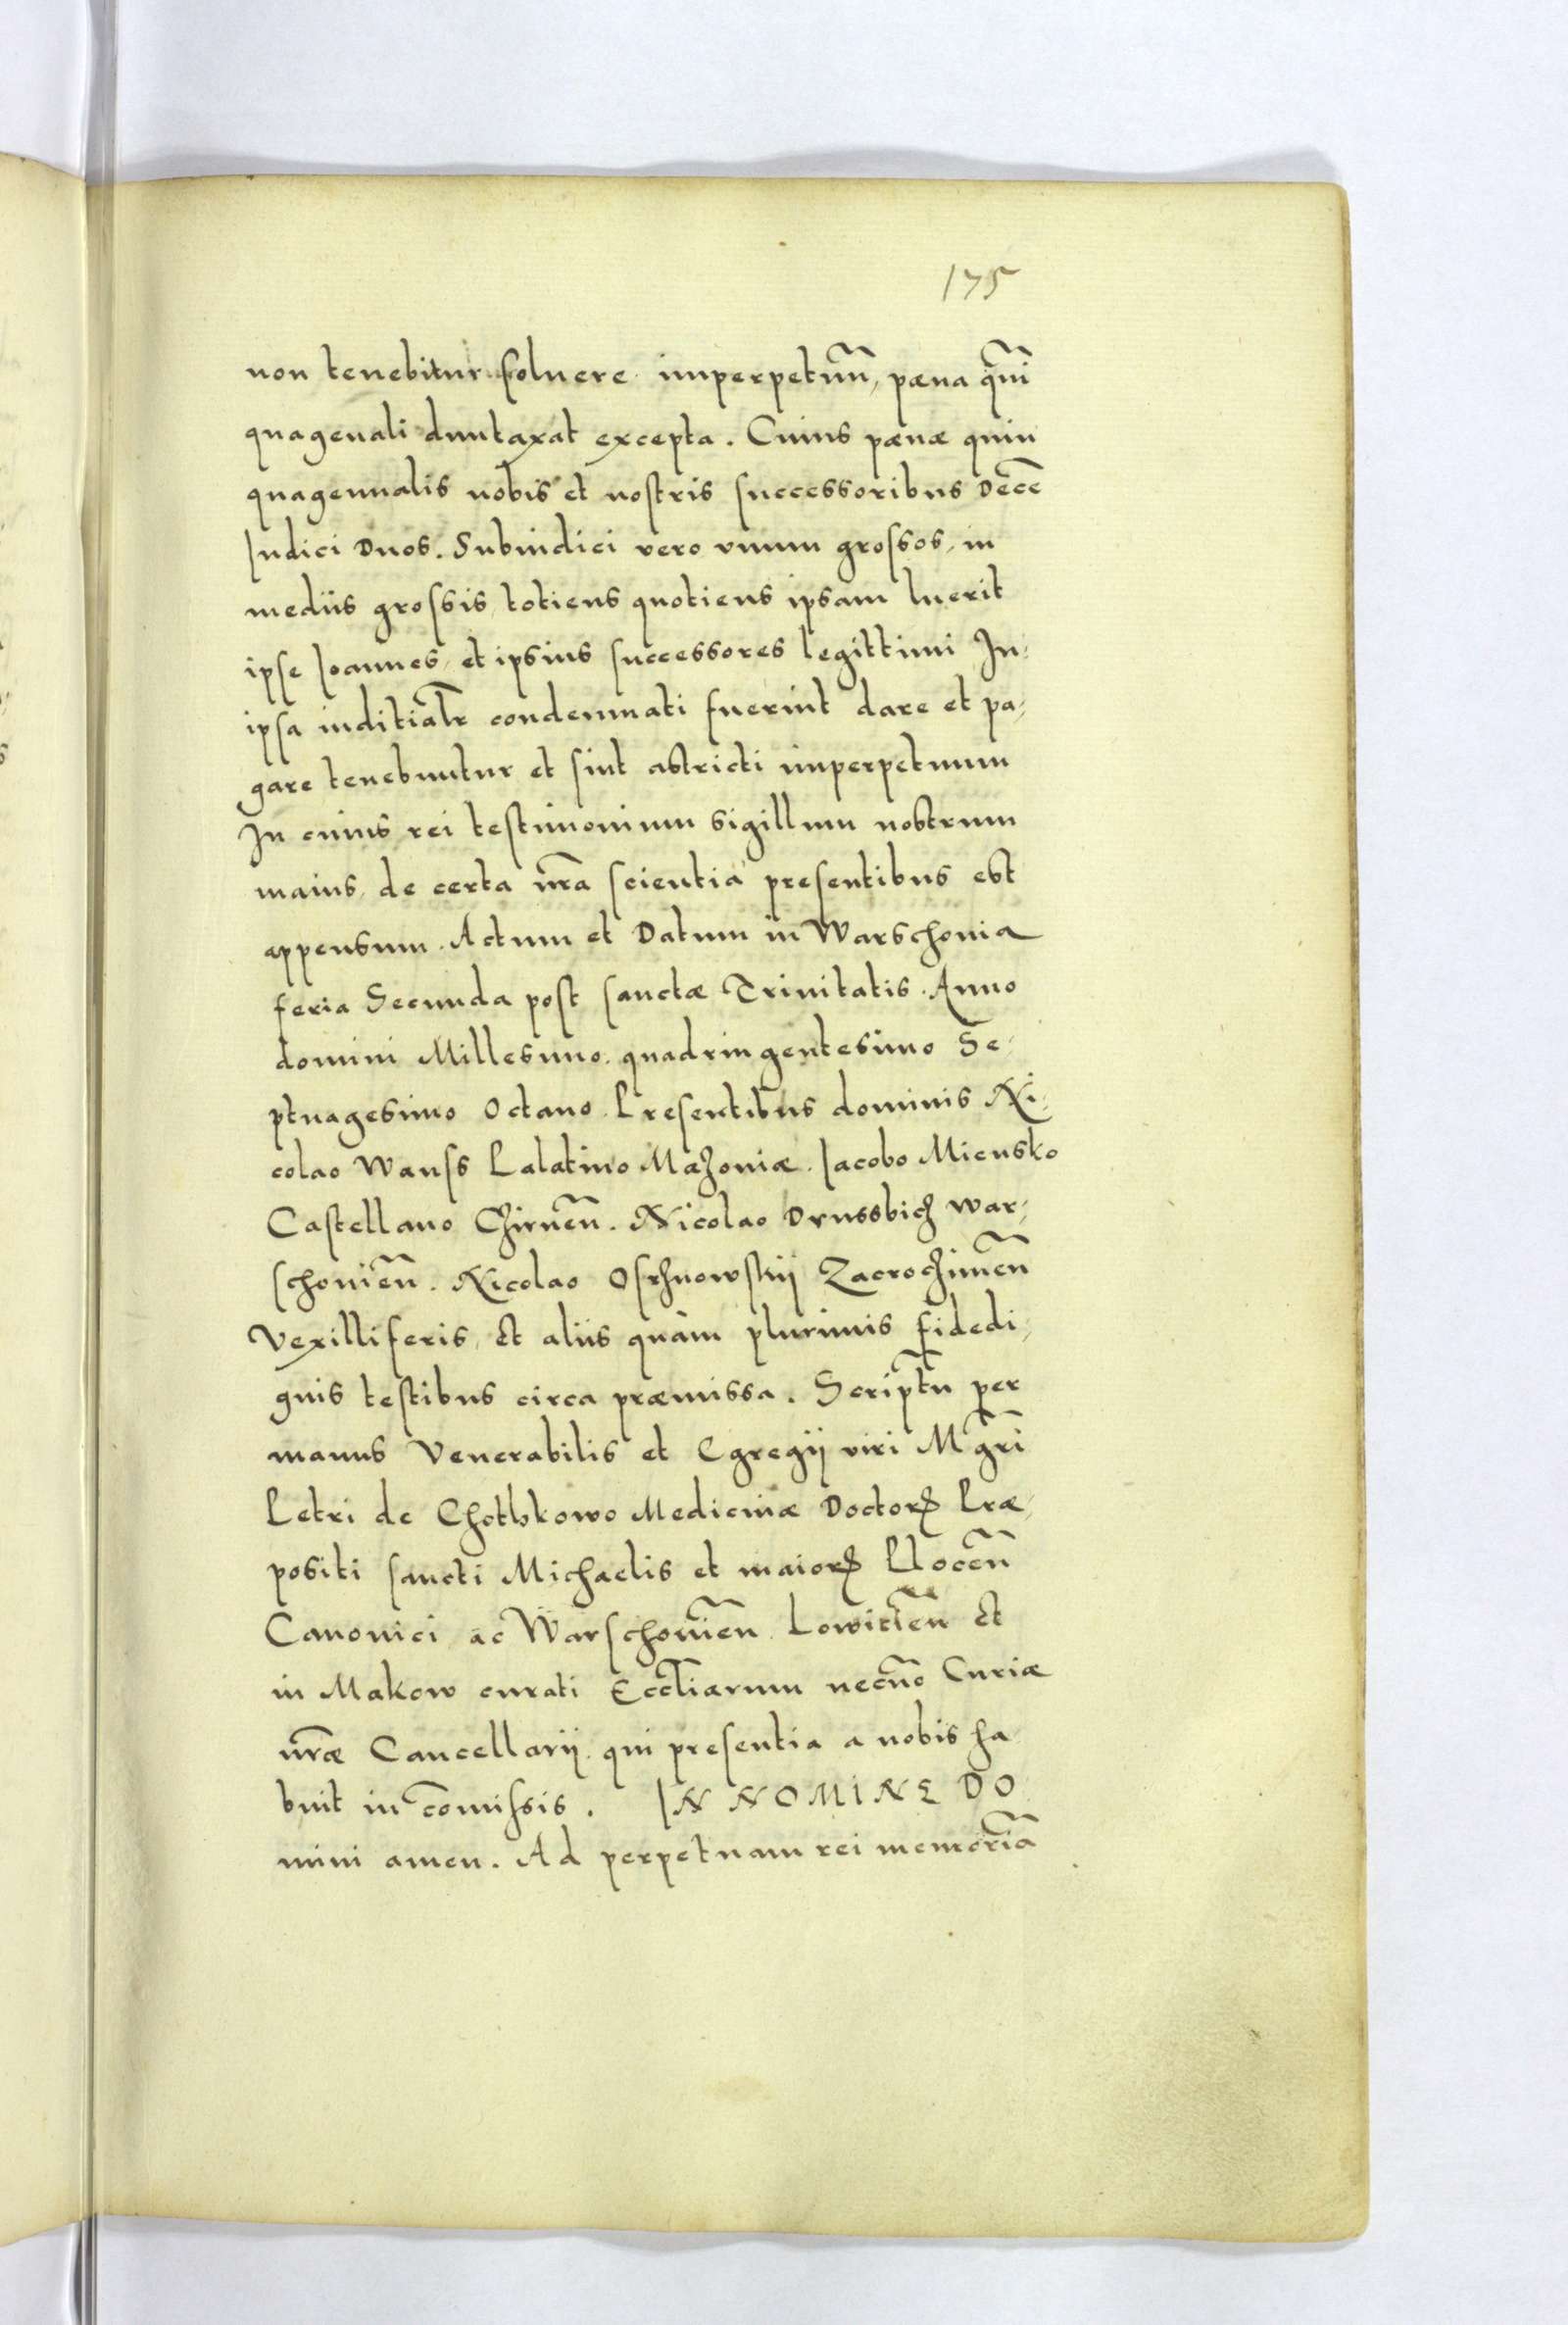 175
non tenebitur soluere imperpetuū, pæna q̄ui
quagenali duntaxat excepta. Cuius pænæ quin
quagennalis nobis et nostris successoribus Decē
Iudici Duos. Subiudici vero vnum grossos, in
mediis grossis, totiens quotiens ipsam luerit
ipse Ioannes, et ipsius successores legittimi In,
ipsa iuditialr̄ condemnati fuerint dare et pa,
gare tenebuntur et sint astricti imperpetuum
In cuius rei testimonium sigillum nostrum
maius, de certa nr̄a scientia presentibus est
appensum. Actum et Datum in Warschouia
feria Secunda post sanctæ Trinitatis. Anno
domini Millesimo. quadringentesimo Se,
ptuagesimo Octauo. Presentibus dominis Ni,
colao Wanss Palatino Mazoniæ. Iacobo Miensko
Castellano Chirnen̄. Nicolao Drussbich war,
schouien̄. Nicolao Osrhnowskij Zacrochimen̄
Vexilliferis, et aliis quàm plurimis fidedi,
gnis testibus circa præmissa. Script̄u per
manus Venerabilis et Egregij viri Mgr̄i
Petri de Chotkowo Medicinæ Doctoris Præ,
positi sancti Michaelis et maioris Plocen̄
Canonici, ac Warschouien̄ Lowicien̄ et
in Makow curati Eccl̄iarum necn̄o Curiæ
nr̄æ Cancellarij. qui presentia a nobis ha
buit in com̄issis. IN NOMINE DO
mini amen. Ad perpetuam rei memoriā